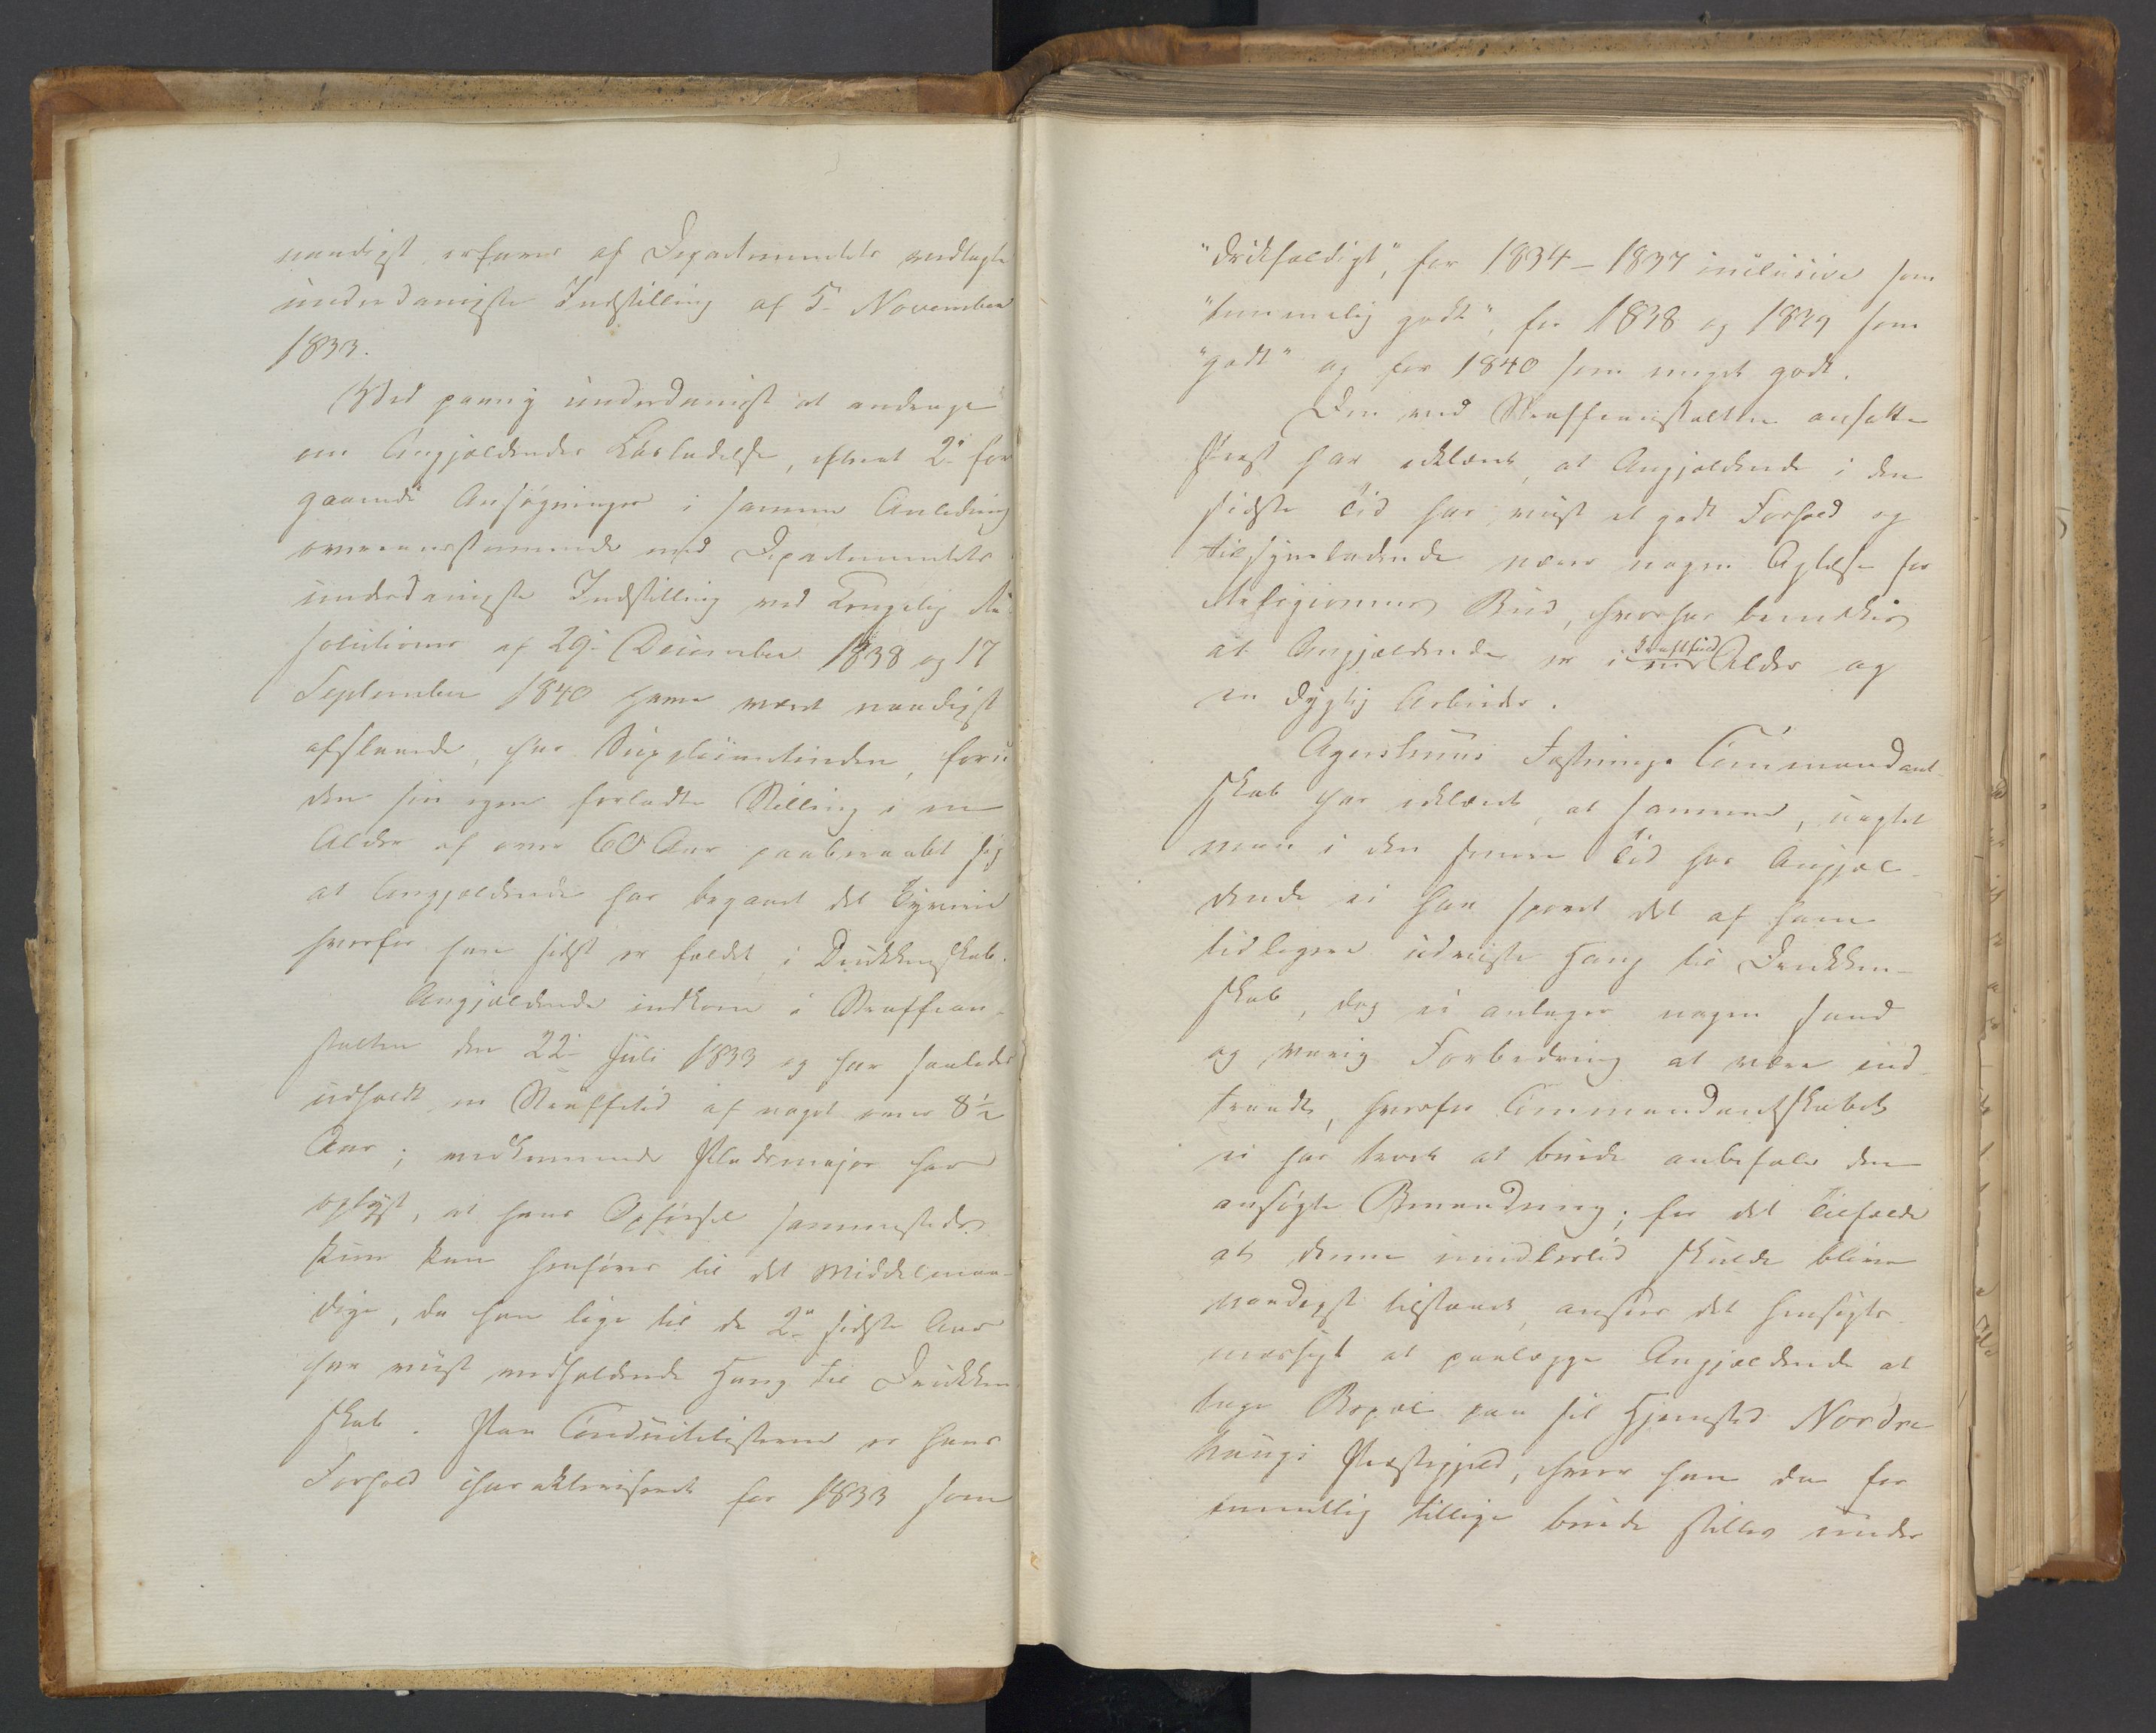 naadigst erfares af Departementets vedlagte
underdanigste Indstilling af 5 November
1833.
Med paany underdanigst at andrage
om Angjældendes Løsladelse, efterat 2 for
gaaende Ansøgninger i samme Anledning
overeensstemmende med Departementets
underdanigste Indstilling ved Kongelig Re
solutioner af 29 December 1838 og 17
September 1840 have været naadigst
afslaaede, har Supplicantinden, foru
den sin egen forladte Stilling i en
Alder af over 60 Aar paaberaabt sig
at Angjældende har begaaet det Tyverie
hvorfor han sidst er fældet, i Drukkenskab.
Angjældende indkom i Straffean-
stalten den 22 Juli 1833 og har saaledes
udholdt en Straffetid af noget over 8½
Aar; vedkommende Pladsmajor har
oplyst, at hans Opførsel sammesteds
kun kan henføres til det Middelmaa-
dige, da han lige til de 2 sidste Aar
har viist vedholdende Hang til Drukken
skab. Paa Conduitelisterne er hans
Forhold charakteriseret for 1833 som
"drikfældigt", for 1834-1837 inclusive som
"temmelig godt", for 1838 og 1839 som
"godt" og for 1840 som meget godt.
Den ved Straffeanstalten ansatte
Præst har erklæret, at Angjældende i den
sidste Tid har viist et godt Forhold og
tilsyneladende nærer nogen Agtelse for
Religionens Bud, hvorhos bemærkes
at Angjældende er i en kraftfuld Alder og
en dygtig Arbeider.
Agershuus Fæstnings Commandant-
skab har erklæret, at samme, uagtet
man i den senere Tid hos Angjæl-
dende ei har sporet det af ham
tidligere udviste Hang til Drukken-
skab, dog ei antager nogen sand
og varig Forbedring at være ind-
traadt, hvorfor Commandantskabet
ei har troet at burde anbefale den
ansøgte Benaadning; for det Tilfælde
at denne imidlertid skulde blive
naadigst tilstaaet, ansees det hensigts-
mæssigt at paalægge Angjældende at
tage Bopæl paa sit Hjemsted Nordre
Haugs Præstegjeld, hvor han da for
mentlig tillige burde stilles under